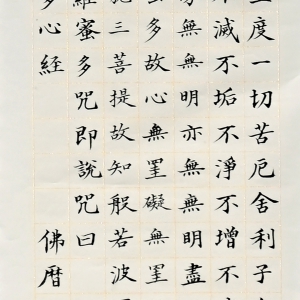 度一切苦厄舍利子
滅不垢不淨不增不
無無明亦無無明盡
多故心無罣礙無罣
三菩提故知般若波
羅蜜多咒即說咒曰
多心經　佛曆